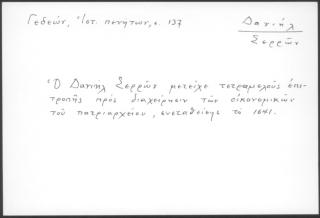 Γεδεών, Ἱστ. πενήτων, σ. 137
Δανιήλ
Σερρῶν
Ὁ Δανιηλ Σερρῶν μετεῖχε τετραμελοῦς ἐπι-
τροπῆς πρός διαχείρησιν τῶν οἰκονομικῶν
τοῦ πατριαρχείου, συσταθείσης τό 1641.